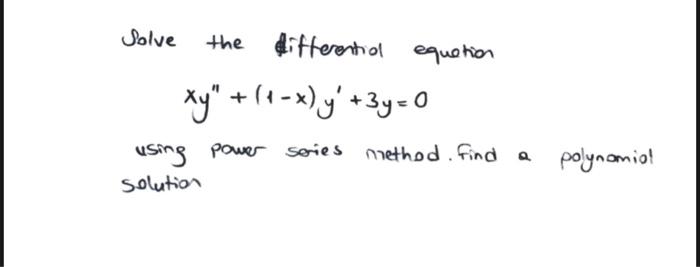 Solve the differential equation
xy" + (1-x) y' + 3y = 0
using power series method. Find a polynomial
solution